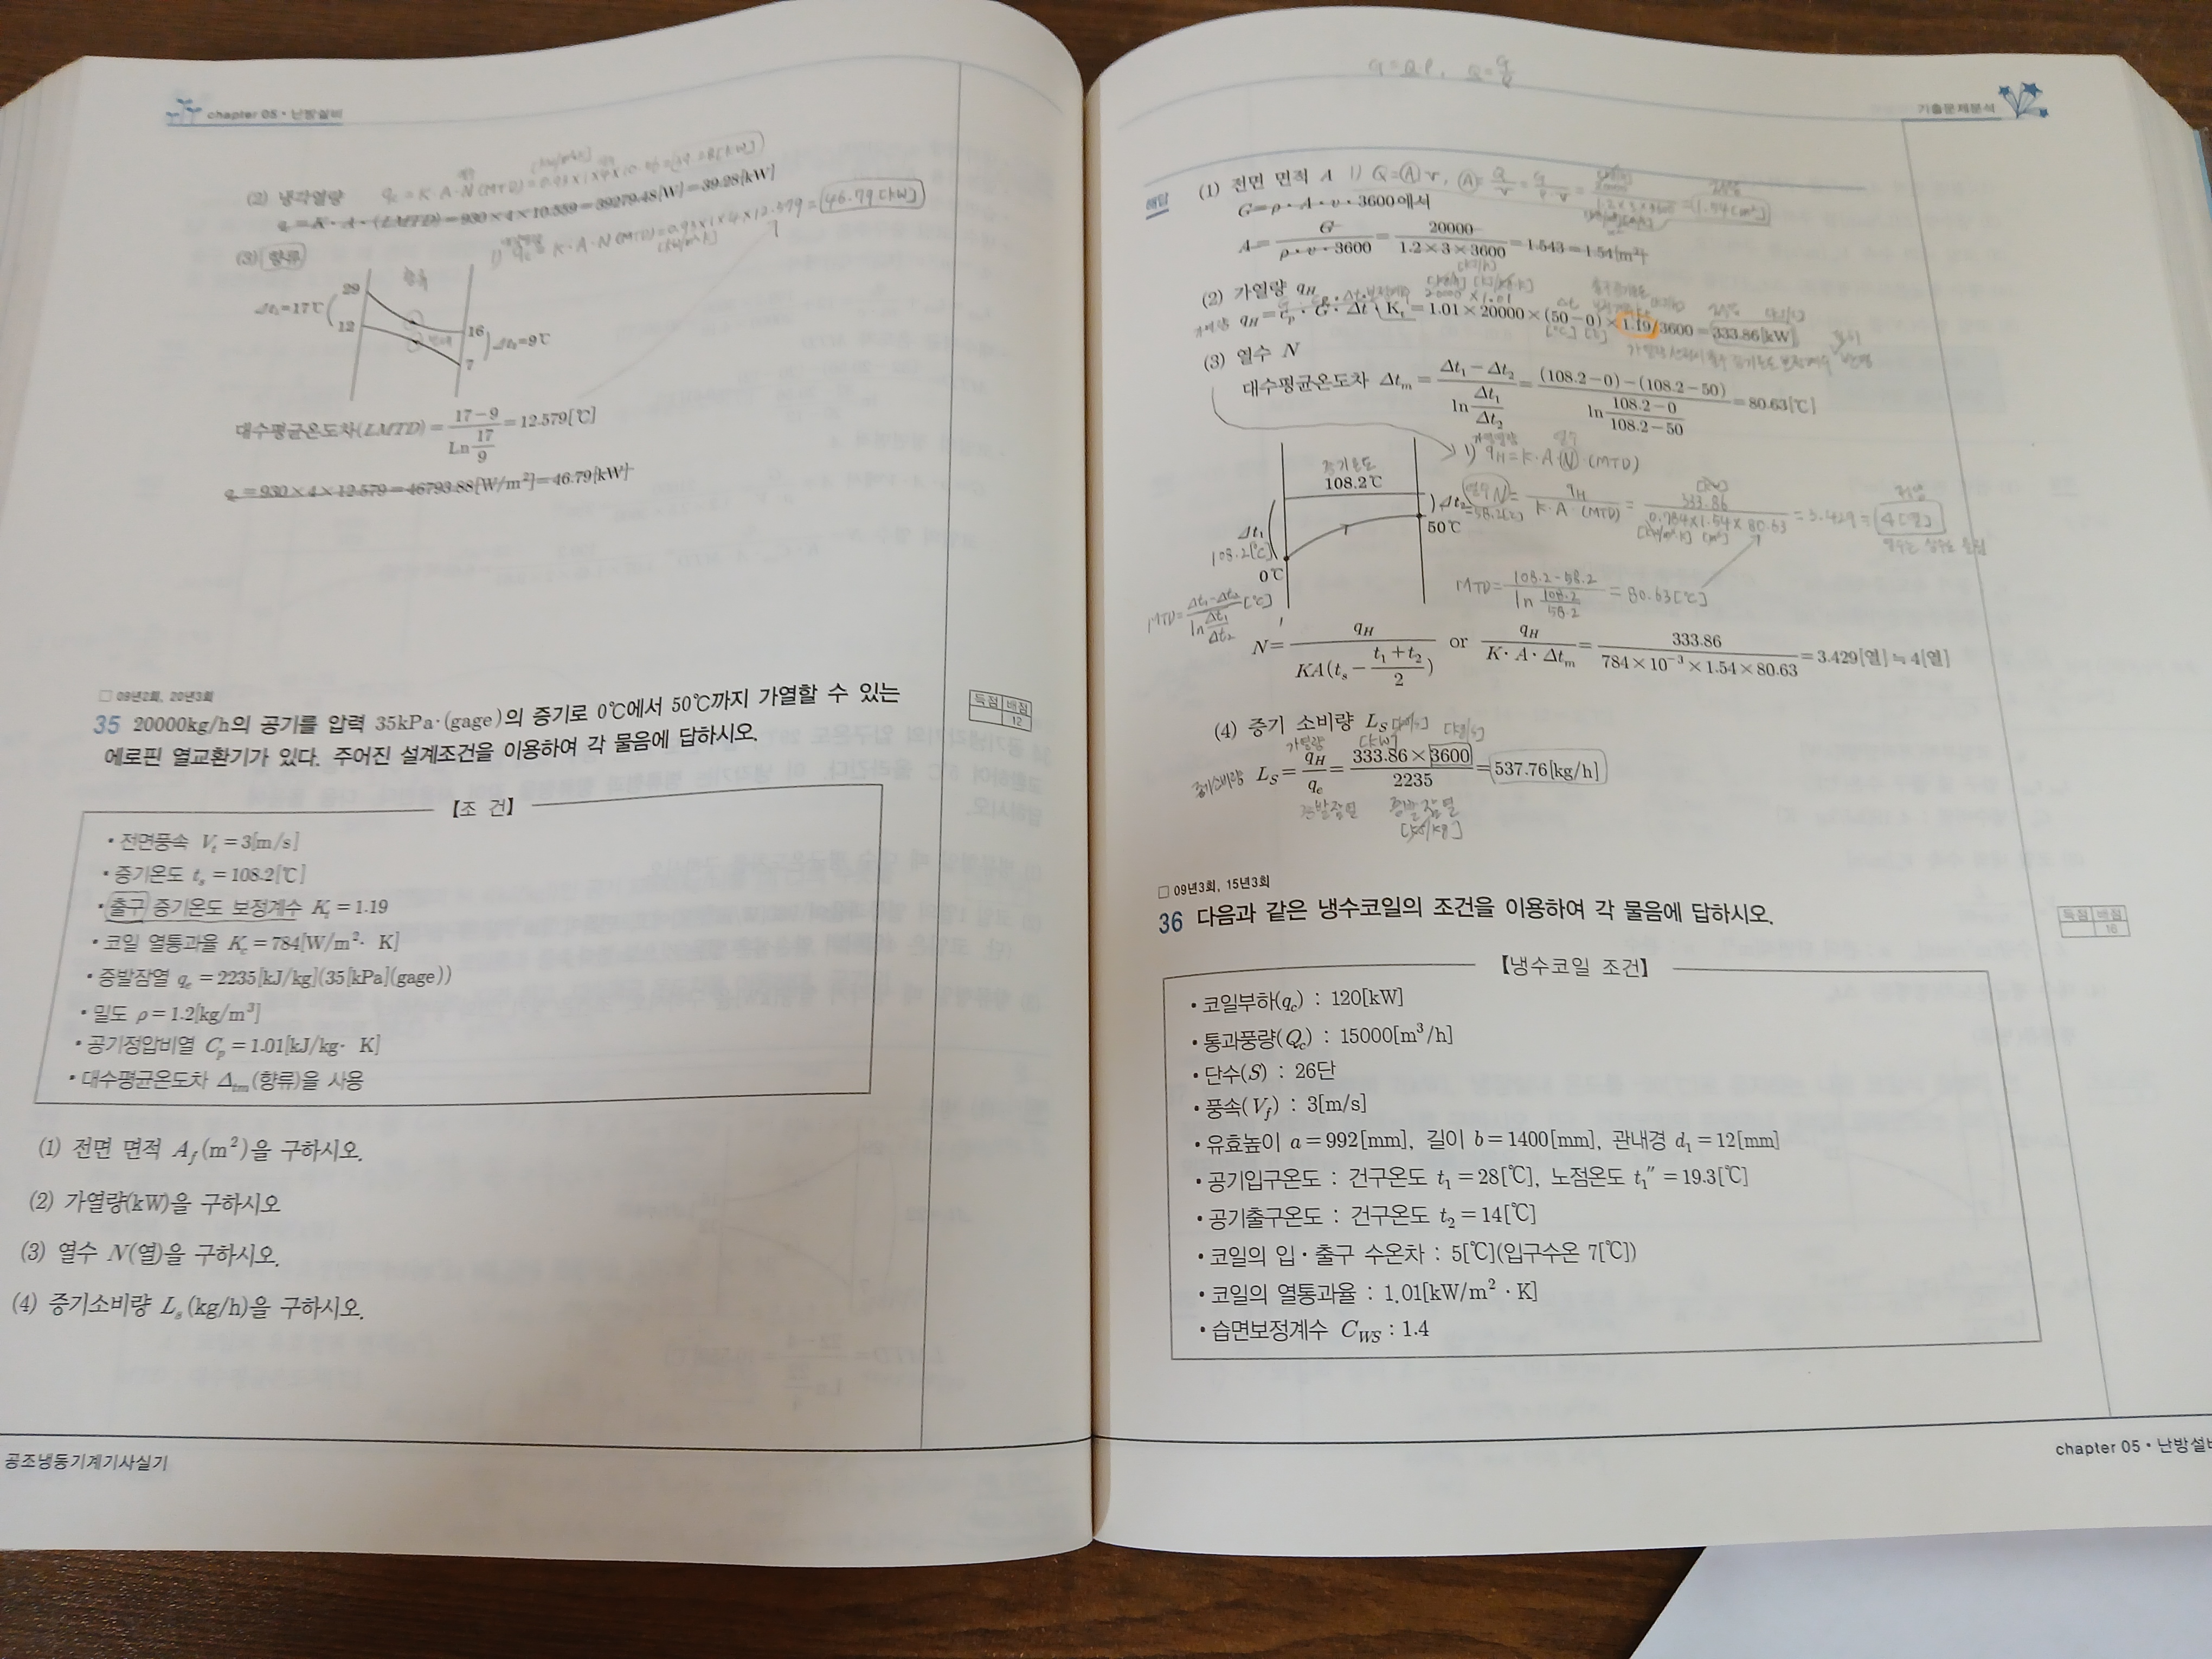 chapter 05 • 난방설비
(2) 냉각열량
q_c = K · A · N (MTD) = 0.93 × 1 × 4 × 10.56
q = K · A · (LMTD) = 930 × 4 × 10.559 = 39279.48[W] = 39.28[kW]
(3) 향류
K · A · N (MTD) = 0.93 × 1 × 4 × 12.579 = 46.79 [kW]
29
Δt₁ = 17℃
12
16
Δt₂ = 9℃
7
대수평균온도차(LMTD) = (17 − 9) / (Ln 17/9) = 12.579[℃]
q = 930 × 4 × 12.579 = 46793.88[W/m²] = 46.79[kW]
□ 09년2회, 20년3회
35 20000kg/h의 공기를 압력 35kPa·(gage)의 증기로 0℃에서 50℃까지 가열할 수 있는
에로핀 열교환기가 있다. 주어진 설계조건을 이용하여 각 물음에 답하시오.
득점 배점
12
【조 건】
• 전면풍속 V_f = 3[m/s]
• 증기온도 t_s = 108.2[℃]
• 출구 증기온도 보정계수 K_t = 1.19
• 코일 열통과율 K_c = 784[W/m² · K]
• 증발잠열 q_e = 2235[kJ/kg](35[kPa](gage))
• 밀도 ρ = 1.2[kg/m³]
• 공기정압비열 C_p = 1.01[kJ/kg · K]
• 대수평균온도차 Δ_tm(향류)을 사용
(1) 전면 면적 A_f(m²)을 구하시오.
(2) 가열량(kW)을 구하시오
(3) 열수 N(열)을 구하시오.
(4) 증기소비량 L_s(kg/h)을 구하시오.
공조냉동기계기사실기
G = Qρ, Q = G/ρ
기출문제분석
해답
(1) 전면 면적 A 1) Q = A v, A = Q/v = G/(ρ · v) = 1.54 [m²]
G = ρ · A · v · 3600에서
A = G / (ρ · v · 3600) = 20000 / (1.2 × 3 × 3600) = 1.543 = 1.54[m²]
(2) 가열량 q_H
q_H = C_p · G · Δt · K_t = 1.01 × 20000 × (50 − 0) × 1.19/3600 = 333.86[kW]
(3) 열수 N
대수평균온도차 Δt_m = (Δt₁ − Δt₂) / (ln Δt₁/Δt₂) = ((108.2 − 0) − (108.2 − 50)) / (ln (108.2 − 0)/(108.2 − 50)) = 80.63[℃]
1) q_H = K · A · N · (MTD)
증기온도
108.2℃
Δt₂ = 58.2[℃]
열수 N = q_H / (K · A · (MTD)) = 333.86 / (0.784 × 1.54 × 80.63) = 3.429 = 4[열]
50℃
Δt₁
108.2[℃]
0℃
MTD = (Δt₁ − Δt₂) / (ln Δt₁/Δt₂) [℃]
MTD = (108.2 − 58.2) / (ln 108.2/58.2) = 80.63[℃]
N = q_H / (KA(t_s − (t₁ + t₂)/2)) or q_H / (K · A · Δt_m) = 333.86 / (784 × 10⁻³ × 1.54 × 80.63) = 3.429[열] ≒ 4[열]
(4) 증기 소비량 L_S
가열량 [kW]
증기소비량 L_S = q_H / q_e = (333.86 × 3600) / 2235 = 537.76[kg/h]
증발잠열 증발잠열
[kJ/kg]
□ 09년3회, 15년3회
36 다음과 같은 냉수코일의 조건을 이용하여 각 물음에 답하시오.
득점 배점
16
【냉수코일 조건】
• 코일부하(q_c) : 120[kW]
• 통과풍량(Q_c) : 15000[m³/h]
• 단수(S) : 26단
• 풍속(V_f) : 3[m/s]
• 유효높이 a = 992[mm], 길이 b = 1400[mm], 관내경 d₁ = 12[mm]
• 공기입구온도 : 건구온도 t₁ = 28[℃], 노점온도 t₁″ = 19.3[℃]
• 공기출구온도 : 건구온도 t₂ = 14[℃]
• 코일의 입 · 출구 수온차 : 5[℃](입구수온 7[℃])
• 코일의 열통과율 : 1.01[kW/m² · K]
• 습면보정계수 C_WS : 1.4
chapter 05 • 난방설비